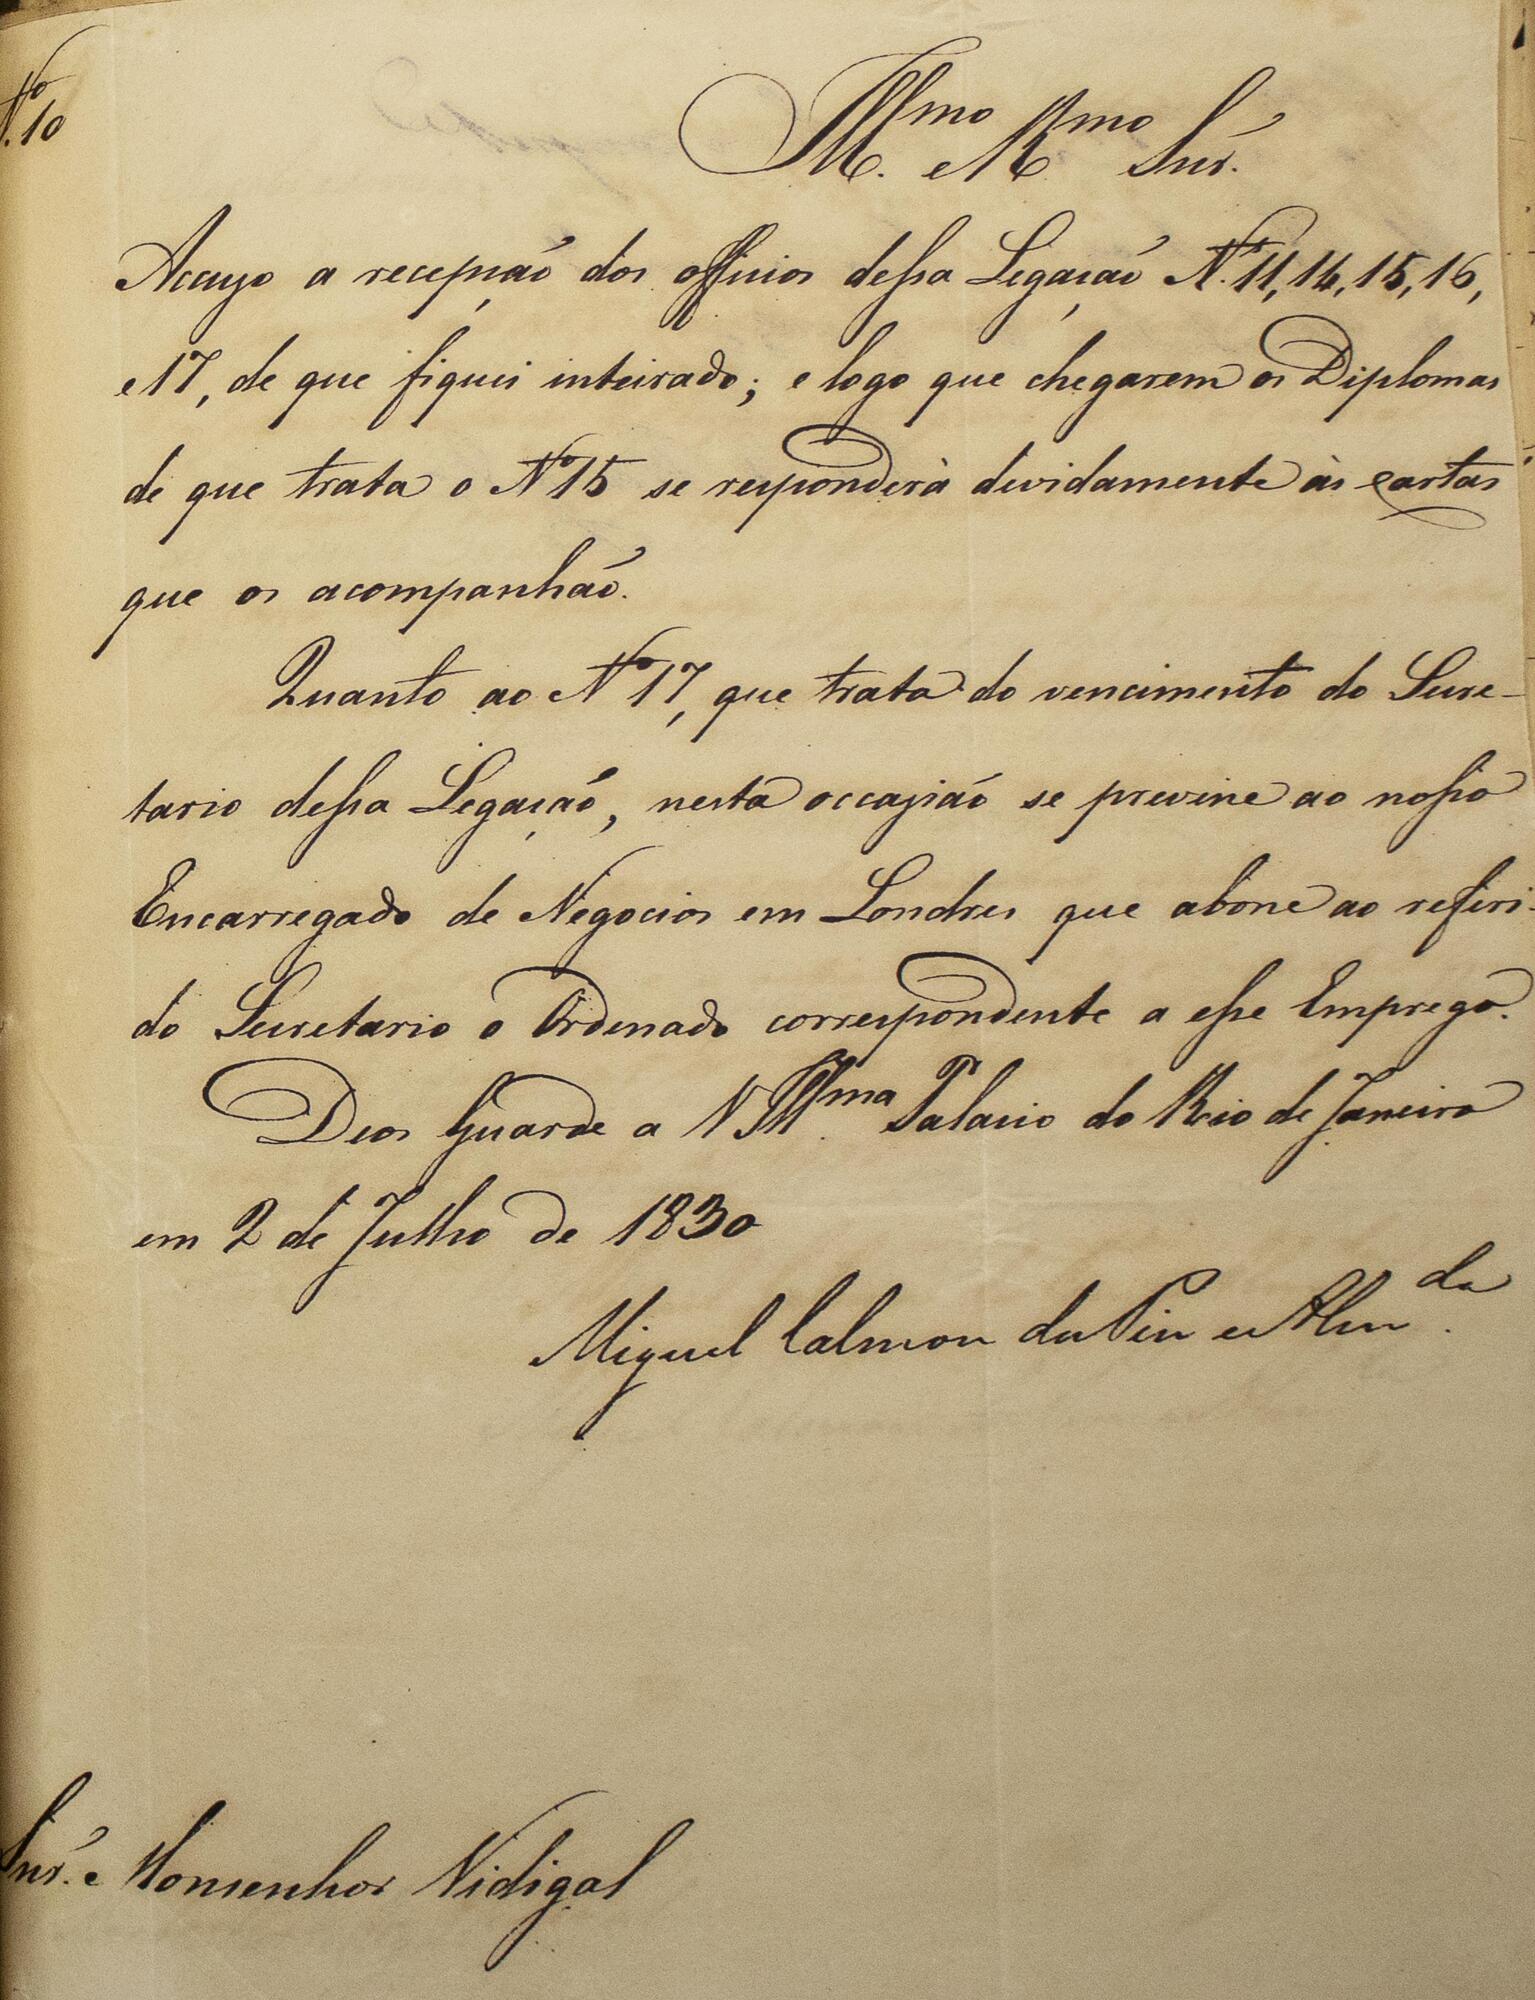 Nº 10
Illmo e Rmo Snr.
Accuzo a recepção dos officios dessa Legação Nos 11, 14, 15, 16,
e 17, de que fiquei inteirado; e logo que chegarem os Diplomas
de que trata o Nº 15 se responderà devidamente às cartas
que os acompanhão.
Quanto ao Nº 17, que trata do vencimento do Secre-
tario dessa Legação, nesta occazião se previne ao nosso
Encarregado de Negocios em Londres que abone ao referi-
do Secretario o Ordenado correspondente a esse Emprego.
Deos Guarde a V Illma Palacio do Rio de Janeiro
em 2 de Julho de 1830
Miguel Calmon du Pin e Almda.
Snr. Monsenhor Vidigal